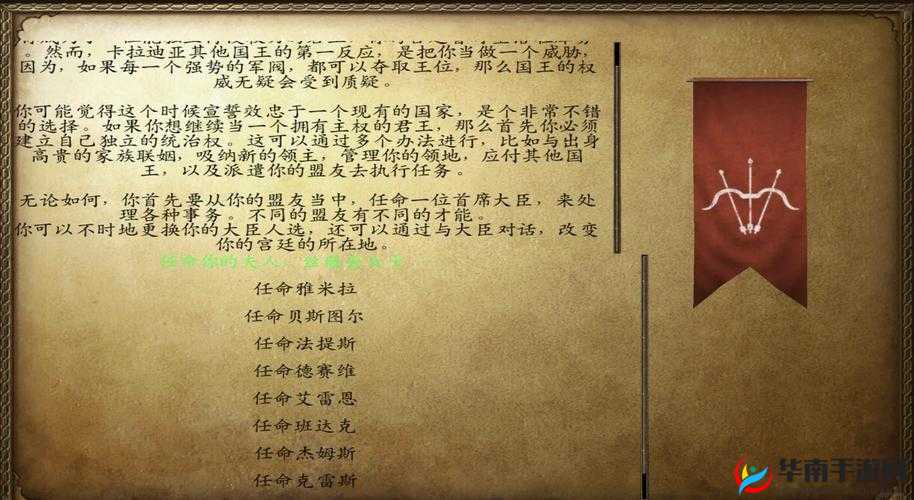 。然而，卡拉迪亚其他国王的第一反应，是把你当做一个威胁，
因为，如果每一个强势的军阀，都可以夺取王位，那么国王的权
威无疑会受到质疑。
你可能觉得这个时候宣誓效忠于一个现有的国家，是个非常不错
的选择。如果你想继续当一个拥有主权的君王，那么首先你必须
建立自己独立的统治权。这可以通过多个办法进行，比如与出身
高贵的家族联姻，吸纳新的领主，管理你的领地，应付其他国
王，以及派遣你的盟友去执行任务。
无论如何，你首先要从你的盟友当中，任命一位首席大臣，来处
理各种事务。不同的盟友有不同的才能。
你可以不时地更换你的大臣人选，还可以通过与大臣对话，改变
你的宫廷的所在地。
任命你的夫人，
任命雅米拉
任命贝斯图尔
任命法提斯
任命德赛维
任命艾雷恩
任命班达克
任命杰姆斯
任命克雷斯
华南手游网